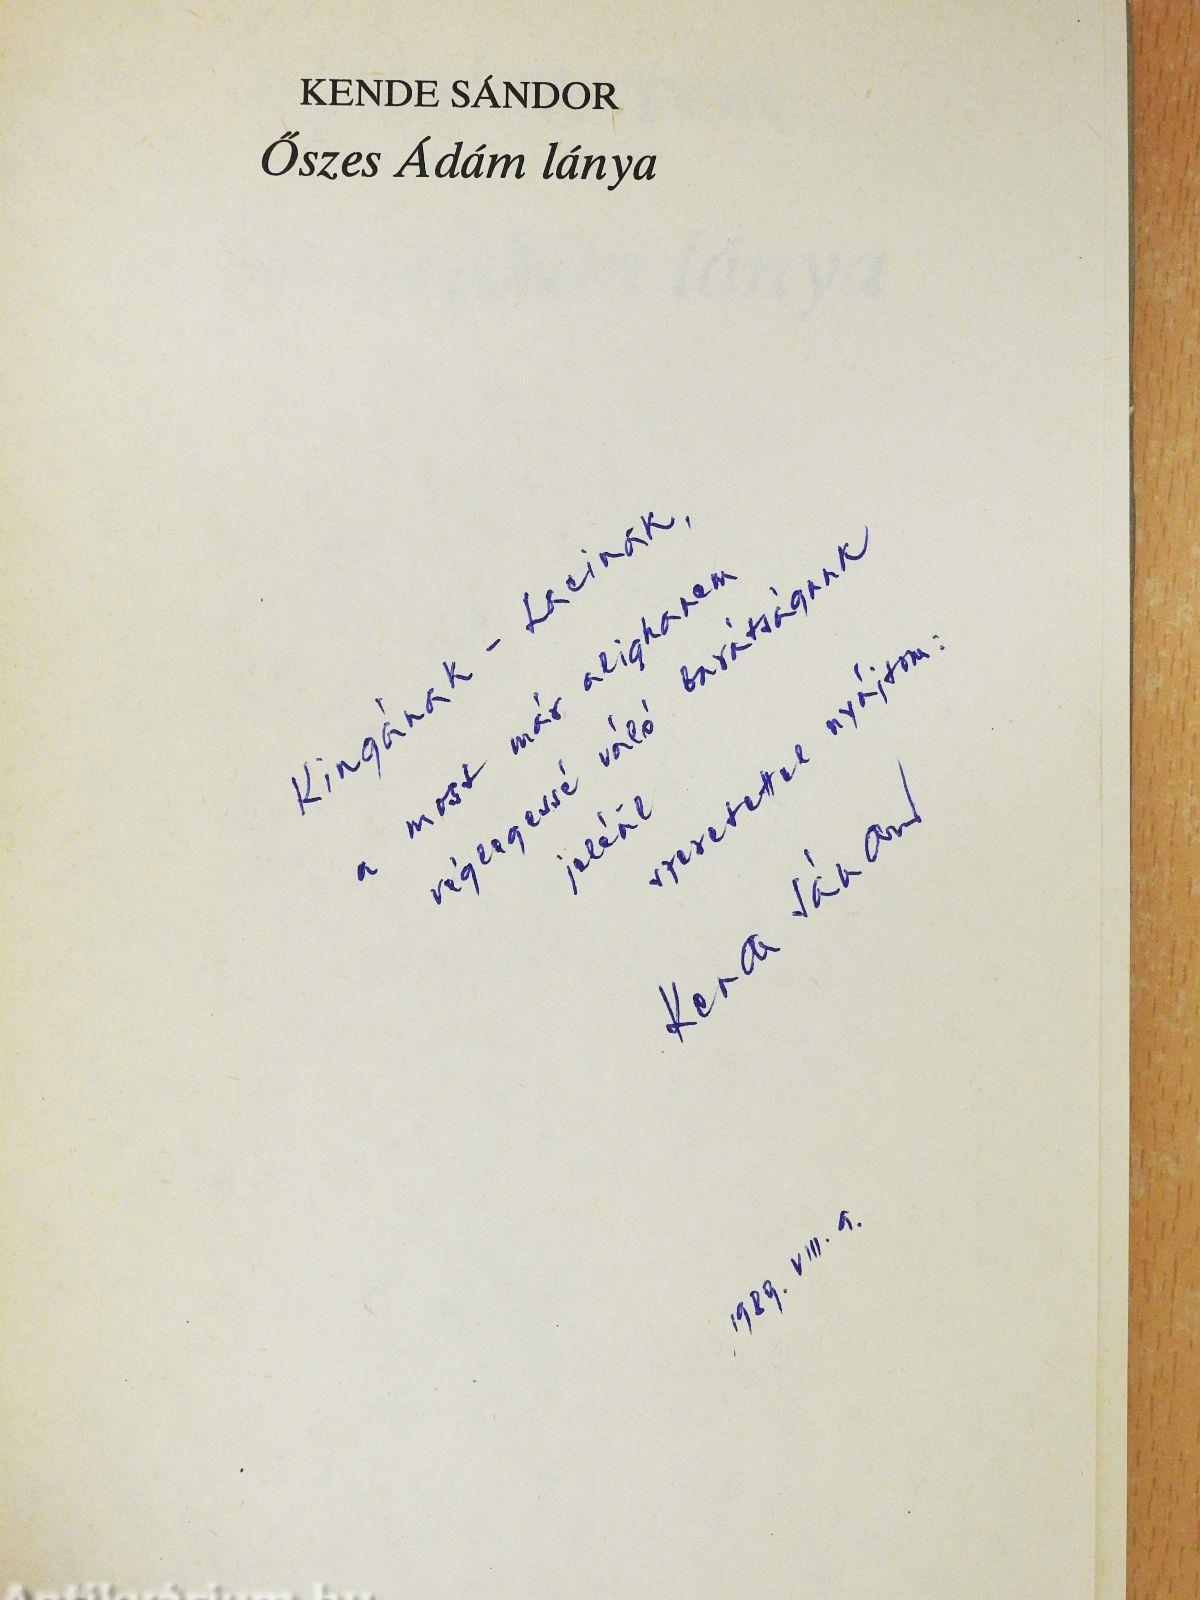 KENDE SÁNDOR
Őszes Ádám lánya
Kingának – Lacinak,
a most már alighanem
véglegessé váló barátságunk
jeléül
szeretettel nyájtom:
Kende Sándor
1989. VIII. 9.
Antikvárium.hu